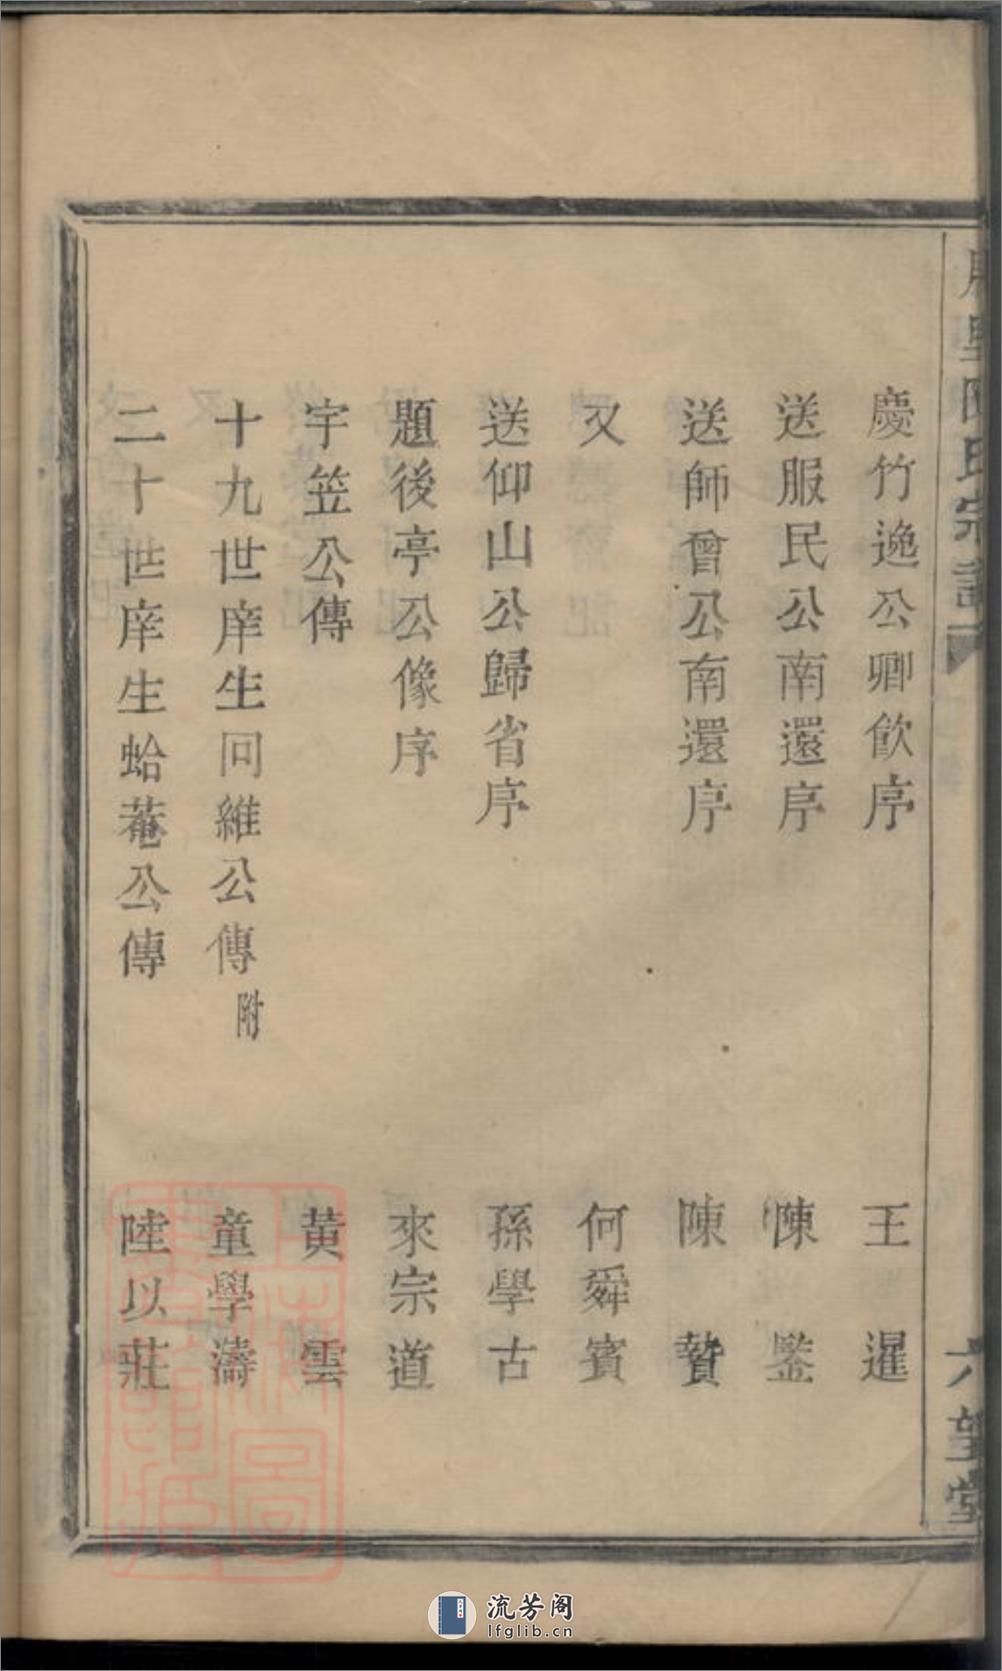 慶竹逸公卿飲序 王暹
送服民公南還序 陳鑒
送師會公南還序 陳贄
又 何舜賓
送仰山公歸省序 孫學古
題後亭公像序 來宗道
宇笠公傳 黃雲
十九世庠生同維公傳附 童學濤
二十世庠生蛤菴公傳 陸以莊
陳氏宗譜
六望堂
流芳阁
lfglib.cn